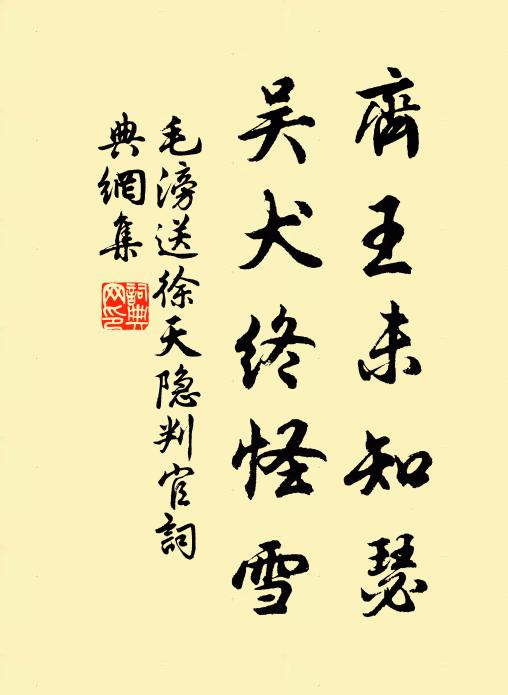 齊王未知瑟
吴犬终怪雪
毛滂送徐天隐判官詞
典網集
詞典网印